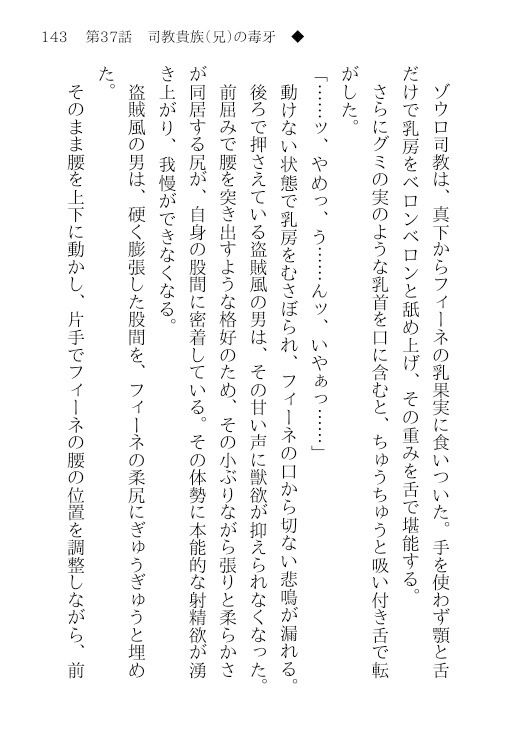 143　第37話　司教貴族(兄)の毒牙　◆
　ゾウロ司教は、真下からフィーネの乳果実に食いついた。手を使わず顎と舌
だけで乳房をベロンベロンと舐め上げ、その重みを舌で堪能する。
　さらにグミの実のような乳首を口に含むと、ちゅうちゅうと吸い付き舌で転
がした。
「……ッ、やめっ、う……んッ、いやぁっ……」
　動けない状態で乳房をむさぼられ、フィーネの口から切ない悲鳴が漏れる。
　後ろで押さえている盗賊風の男は、その甘い声に獣欲が抑えられなくなった。
　前屈みで腰を突き出すような格好のため、その小ぶりながら張りと柔らかさ
が同居する尻が、自身の股間に密着している。その体勢に本能的な射精欲が湧
き上がり、我慢ができなくなる。
　盗賊風の男は、硬く膨張した股間を、フィーネの柔尻にぎゅうぎゅうと埋め
た。
　そのまま腰を上下に動かし、片手でフィーネの腰の位置を調整しながら、前